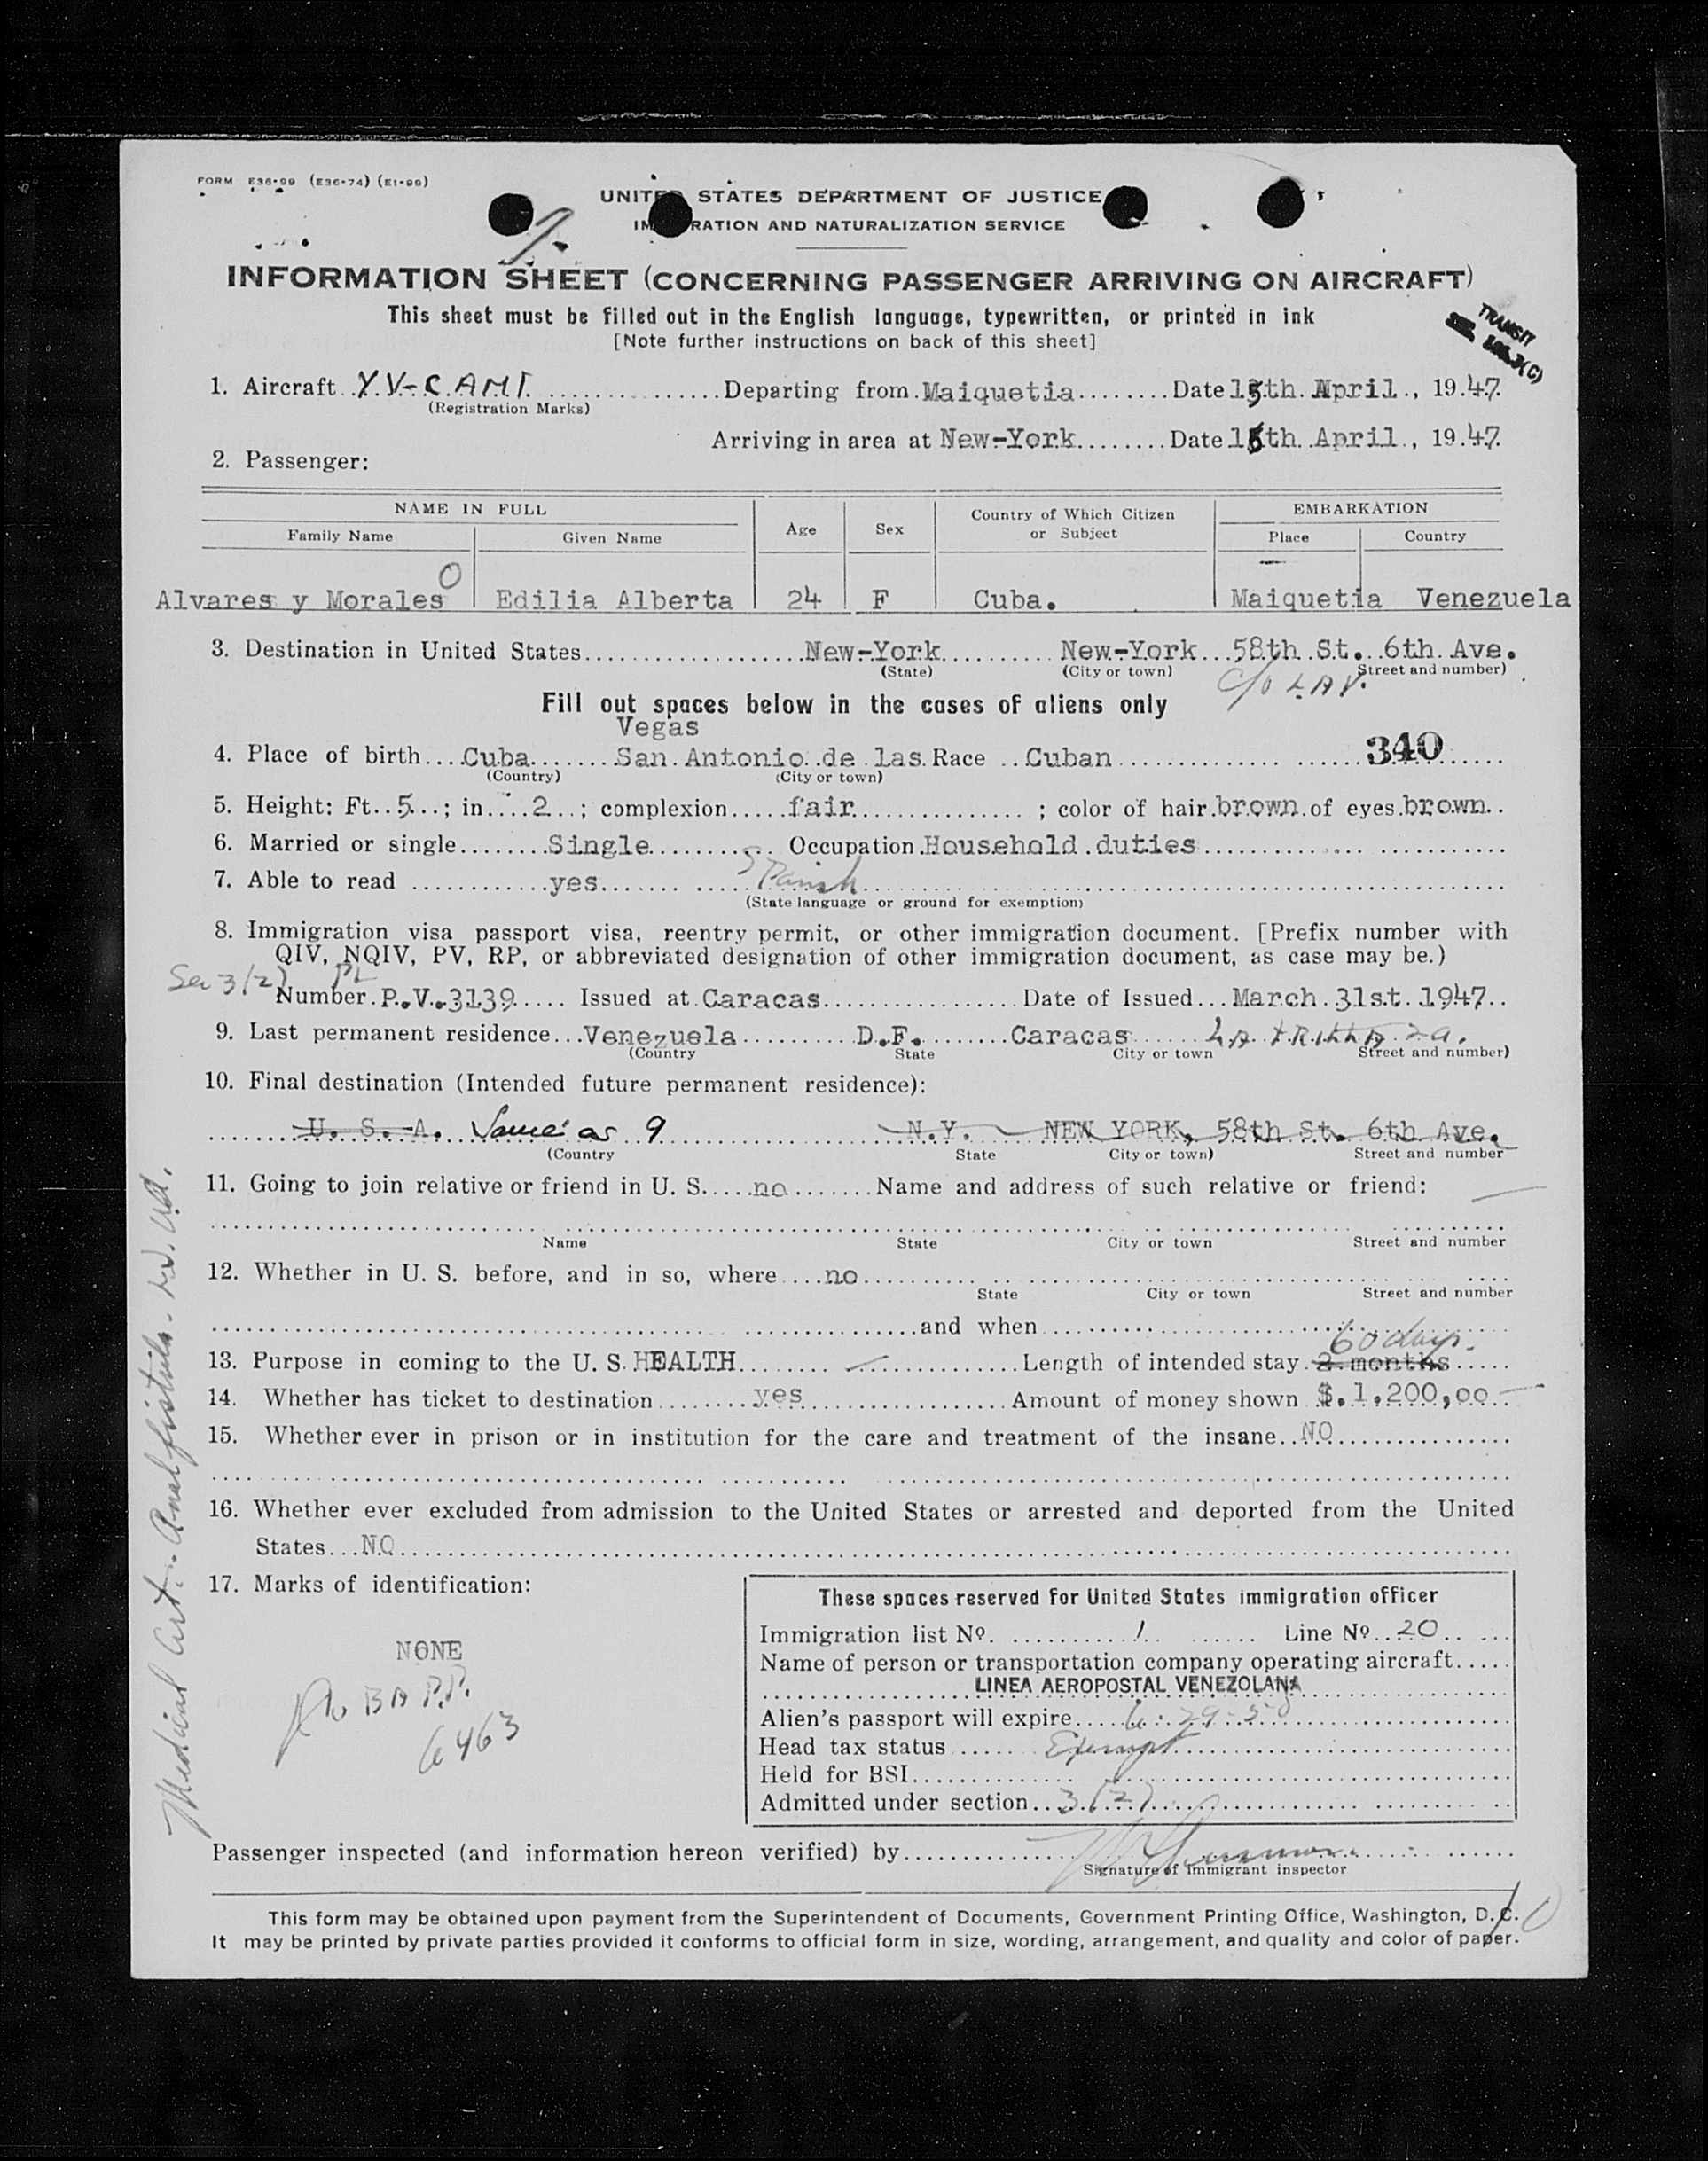 FORM E36-99 (E36-74) (E1-99)
UNITED STATES DEPARTMENT OF JUSTICE
IM RATION AND NATURALIZATION SERVICE
INFORMATION SHEET (CONCERNING PASSENGER ARRIVING ON AIRCRAFT)
This sheet must be filled out in the English language, typewritten, or printed in ink
[Note further instructions on back of this sheet]
TRANSIT
1. Aircraft Y.V-C.AMI. Departing from Maiquetia Date 15th April, 19 47
(Registration Marks)
Arriving in area at New-York Date 15th April, 19 47
2. Passenger:
NAME IN FULL Age Sex Country of Which Citizen or Subject EMBARKATION
Family Name Given Name Place Country
Alvares y Morales O Edilia Alberta 24 F Cuba. Maiquetia Venezuela
3. Destination in United States New-York New-York 58th St. 6th Ave.
(State) (City or town) Street and number)
c/o L.A.V.
Fill out spaces below in the cases of aliens only
Vegas
4. Place of birth Cuba San Antonio de las Race Cuban 340
(Country) (City or town)
5. Height: Ft. 5 ; in. 2 ; complexion fair ; color of hair brown of eyes brown
6. Married or single Single Occupation Household duties
7. Able to read yes Spanish
(State language or ground for exemption)
8. Immigration visa passport visa, reentry permit, or other immigration document. [Prefix number with
QIV, NQIV, PV, RP, or abbreviated designation of other immigration document, as case may be.)
Sec 3(2)
Number P.V. 3139 Issued at Caracas Date of Issued March 31st. 1947
9. Last permanent residence Venezuela D.F. Caracas
(Country State City or town Street and number)
10. Final destination (Intended future permanent residence):
U. S. A. Same as 9 N.Y. NEW YORK, 58th St. 6th Ave.
(Country State City or town) Street and number
11. Going to join relative or friend in U. S. no Name and address of such relative or friend:
Name State City or town Street and number
12. Whether in U. S. before, and in so, where no
State City or town Street and number
and when
60 days.
13. Purpose in coming to the U. S. HEALTH Length of intended stay 2 months
14. Whether has ticket to destination yes Amount of money shown $.1.200,oo
15. Whether ever in prison or in institution for the care and treatment of the insane NO
16. Whether ever excluded from admission to the United States or arrested and deported from the United
States NO
17. Marks of identification:
NONE
6463
Medical Cert. Anal fistula.
These spaces reserved for United States immigration officer
Immigration list No. 1 Line No. 20
Name of person or transportation company operating aircraft
LINEA AEROPOSTAL VENEZOLANA
Alien's passport will expire 6-29-50
Head tax status Exempt
Held for BSI
Admitted under section 3(2)
Passenger inspected (and information hereon verified) by
Signature of immigrant inspector
This form may be obtained upon payment from the Superintendent of Documents, Government Printing Office, Washington, D.C.
It may be printed by private parties provided it conforms to official form in size, wording, arrangement, and quality and color of paper.